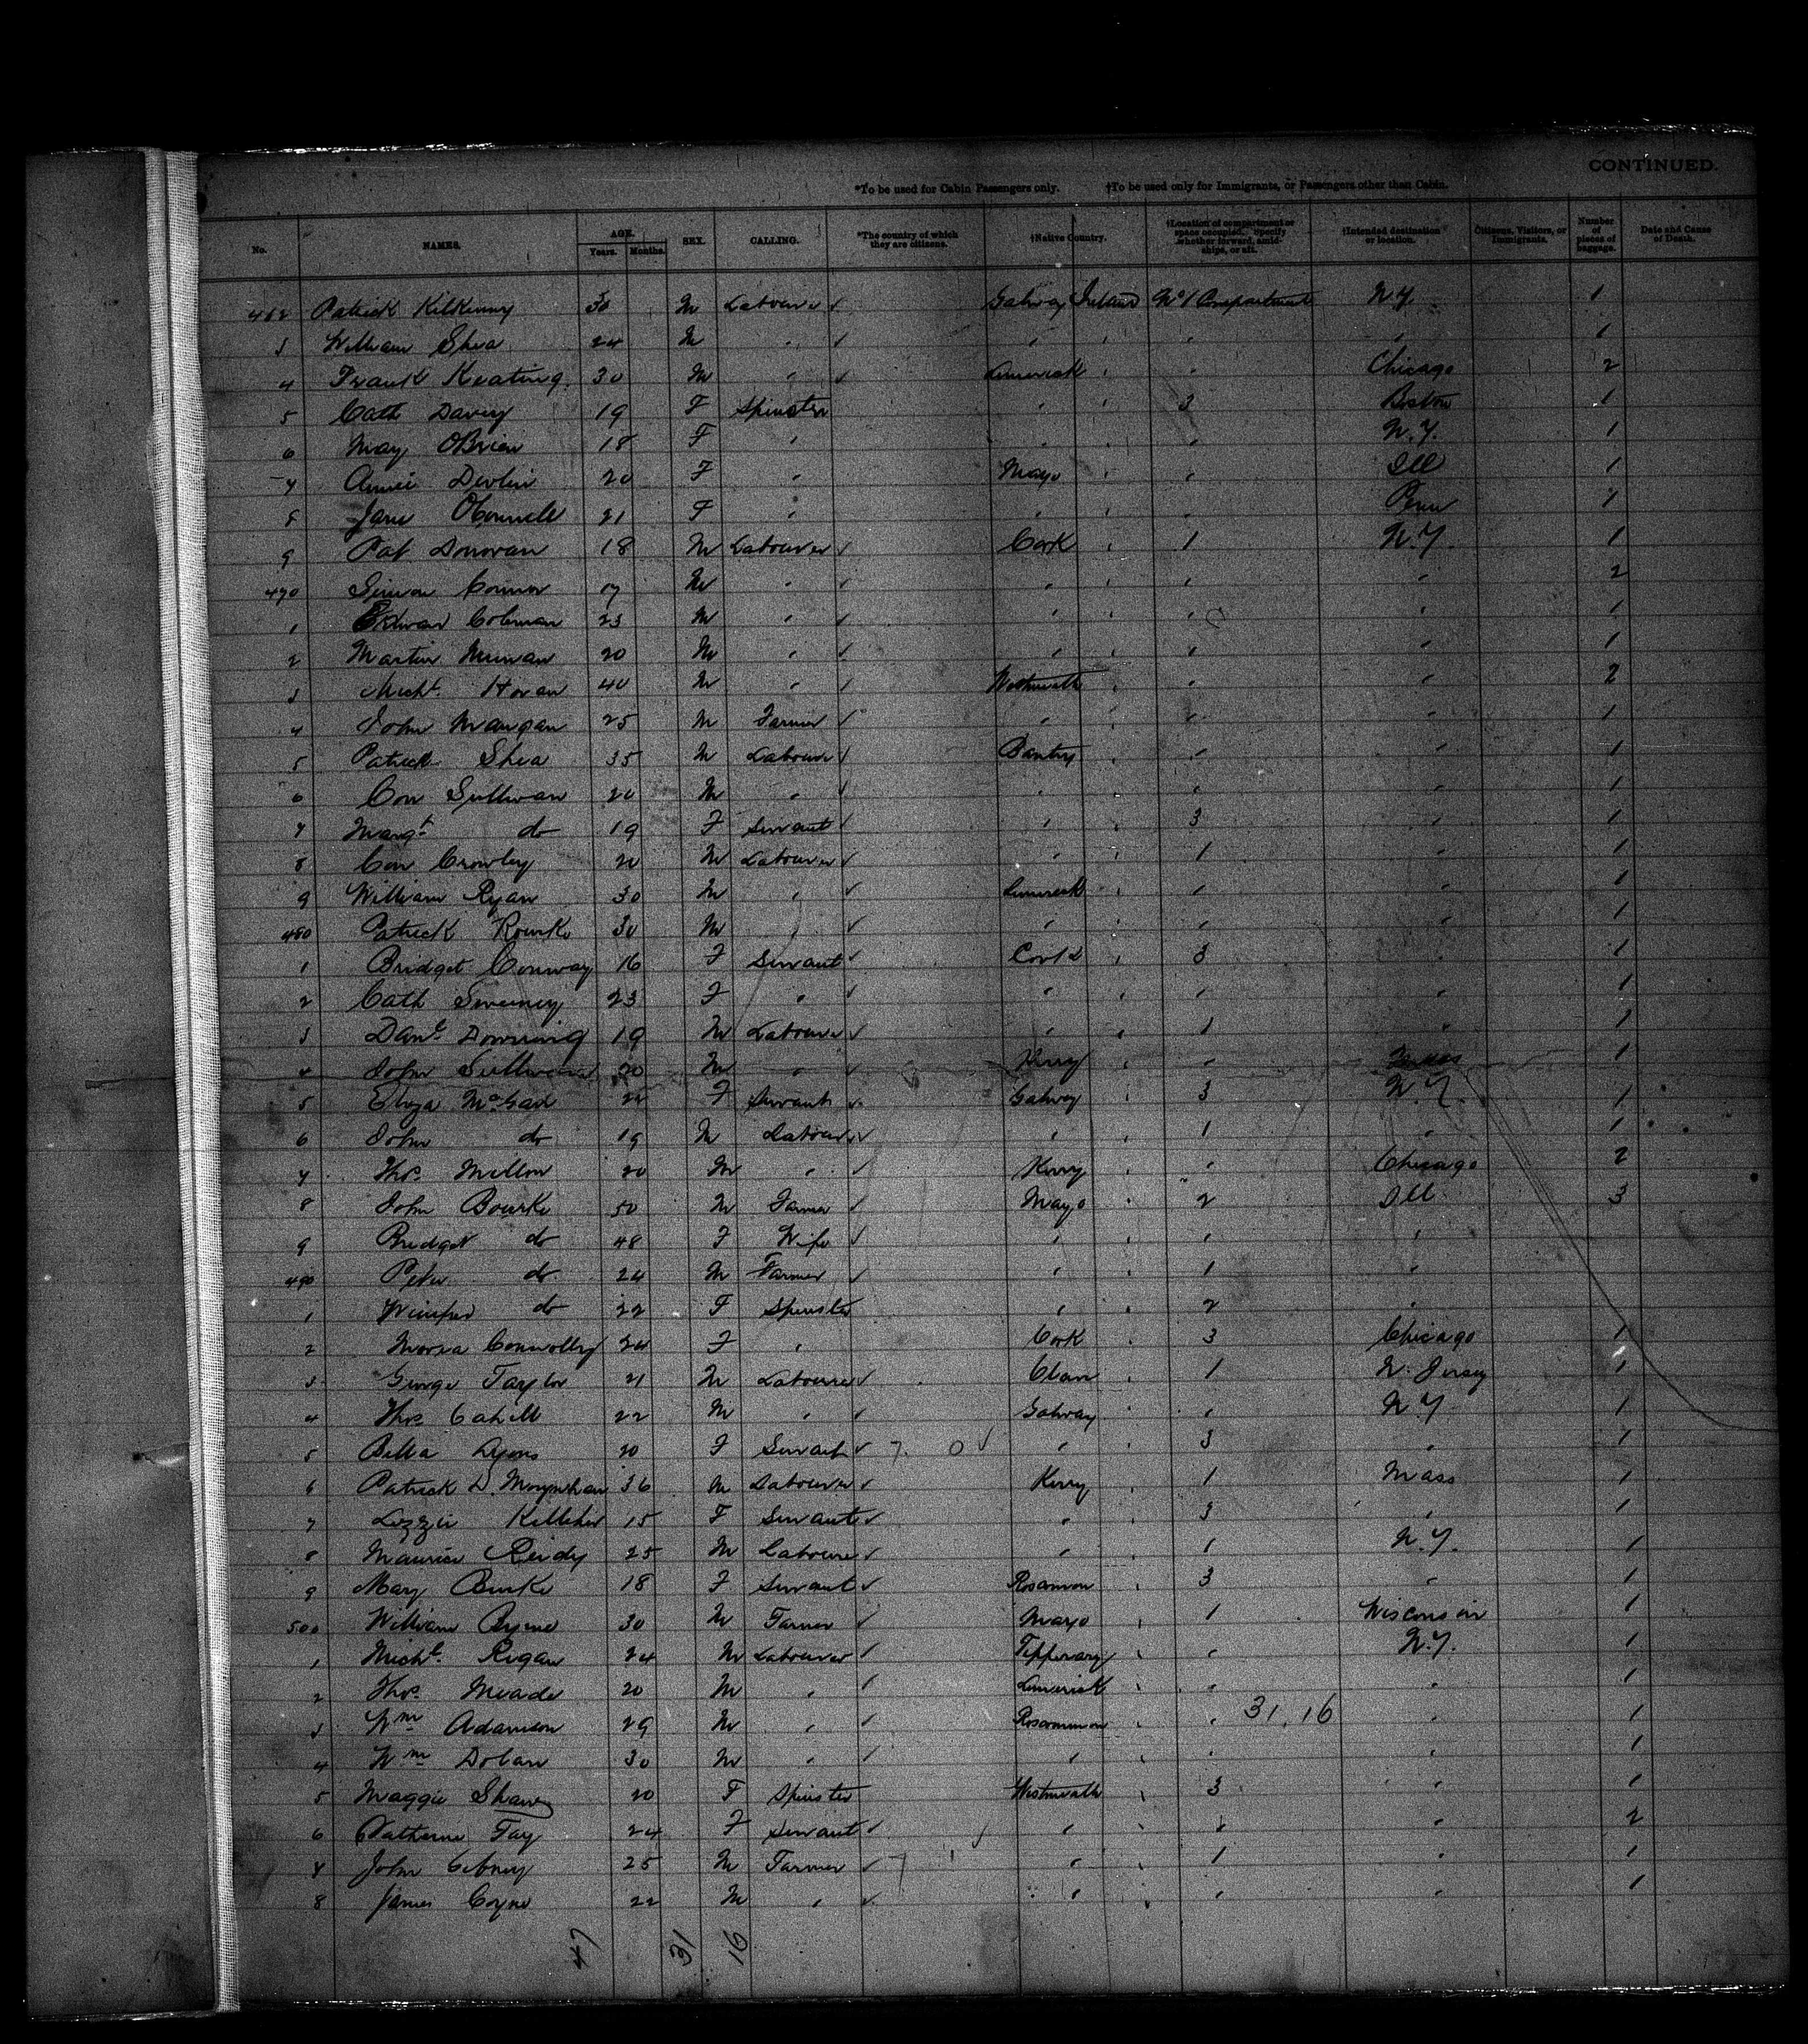 CONTINUED.
*To be used for Cabin Passengers only. †To be used only for Immigrants, or Passengers other than Cabin.
No. NAMES. AGE. Years. Months. SEX. CALLING. *The country of which they are citizens. †Native Country. †Location of compartment or space occupied. Specify whether forward, amidships, or aft. †Intended destination or location. Citizens, Visitors, or Immigrants. Number of pieces of baggage. Date and Cause of Death.
462 Patrick Kilkenny 30 M Labourer ✓ Galway Ireland No 1 Compartment N.Y. 1
3 William Shea 24 M " ✓ " " " " 1
4 Frank Keating 30 M " ✓ Limerick " " Chicago 2
5 Cath Davey 19 F Spinster " " 3 Boston 1
6 May OBrien 18 F " " " " N.Y. 1
7 Annie Devlin 20 F " Mayo " " Ill 1
8 Jane OConnell 21 F " " " " Penn
9 Pat Donovan 18 M Labourer ✓ Cork " 1 N.Y. 1
470 Simon Connor 17 M " ✓ " " " " 2
1 Edwar Coleman 23 M " ✓ " " " " 1
2 Martin 20 M " ✓ " " " " 1
3 Michl. Horan 40 M " ✓ Westmeath " " " 2
4 John Mangan 25 M Farmer ✓ " " " " 1
5 Patrick Shea 35 M Labourer ✓ Bantry " " " 1
6 Con Sullivan 20 M " ✓ " " " " 1
7 Margt do 19 F Servant ✓ " " 3 " 1
8 Con Crowley 20 M Labourer ✓ " " 1 " 1
9 William Ryan 30 M " ✓ Limerick " " " 1
480 Patrick Rourke 30 M " ✓ " " " " 1
1 Bridget Conway 16 F Servant ✓ " 3 1
2 Cath Sweeney 23 F " ✓ " " " " 1
3 Danl Downing 19 M Labourer ✓ " " 1 " 1
4 John Sullivan 20 M " ✓ Kerry " " 1
5 Eliza 22 F Servant ✓ Galway " 3 N.Y. 1
6 John do 19 M Labourer ✓ " " 1 " 1
7 Thos. 20 M " ✓ Kerry " " Chicago 2
8 John Bourke 50 M Farmer ✓ Mayo " 2 Ill 3
9 Bridget do 48 F Wife ✓ " " " "
490 Peter do 24 M Farmer ✓ " " 1 "
1 Winifred do 22 F Spinster " " 2 "
2 Connolly 24 F " Cork " 3 Chicago 1
3 George Taylor 21 M Labourer ✓ Clare " 1 N. Jersey 1
4 Thos Cahill 22 M " ✓ Galway " " N.Y 1
5 Bella Lyons 20 F Servant ✓ " " 3 " 1
6 Patrick D. Moynihan 36 M Labourer ✓ Kerry " 1 Mass 1
7 Lizzie Kelleher 15 F Servant ✓ " " 3 " 1
8 Maurice Reidy 25 M Labourer ✓ " " 1 N.Y. 1
9 Mary Burke 18 F Servant ✓ " 3 " 1
500 William Byrne 30 M Farmer ✓ Mayo " 1 Wisconsin 1
1 Michl. Regan 24 M Labourer ✓ Tipperary " " N.Y. 1
2 Thos. Meade 20 M " ✓ Limerick " " " 1
3 Wm Adamson 29 M " ✓ Roscommon " " 31.16 " 1
4 Wm Dolan 30 M " ✓ " " " " 1
5 Maggie Shaw 20 F Spinster Westmeath " 3 " 1
6 Catherine Fay 24 F Servant ✓ " " " " 2
7 John 25 M Farmer ✓ " " 1 " 1
8 James Coyne 22 M " ✓ " " " " 1
47 31 16